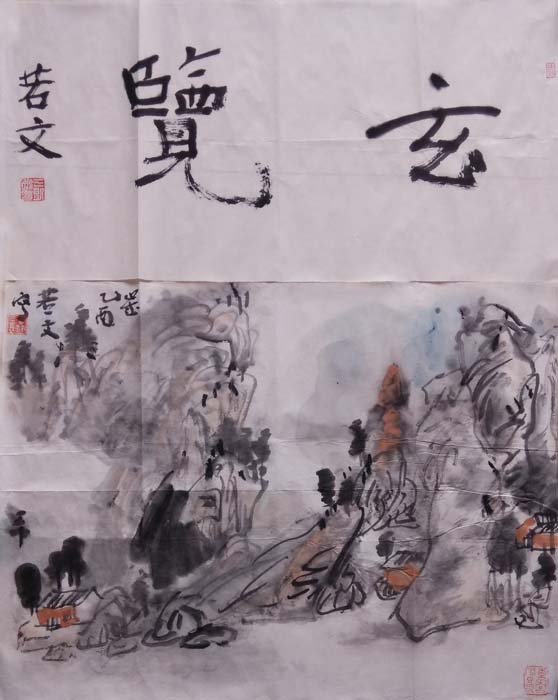 玄覽
若文
歲
乙酉
若文
寫